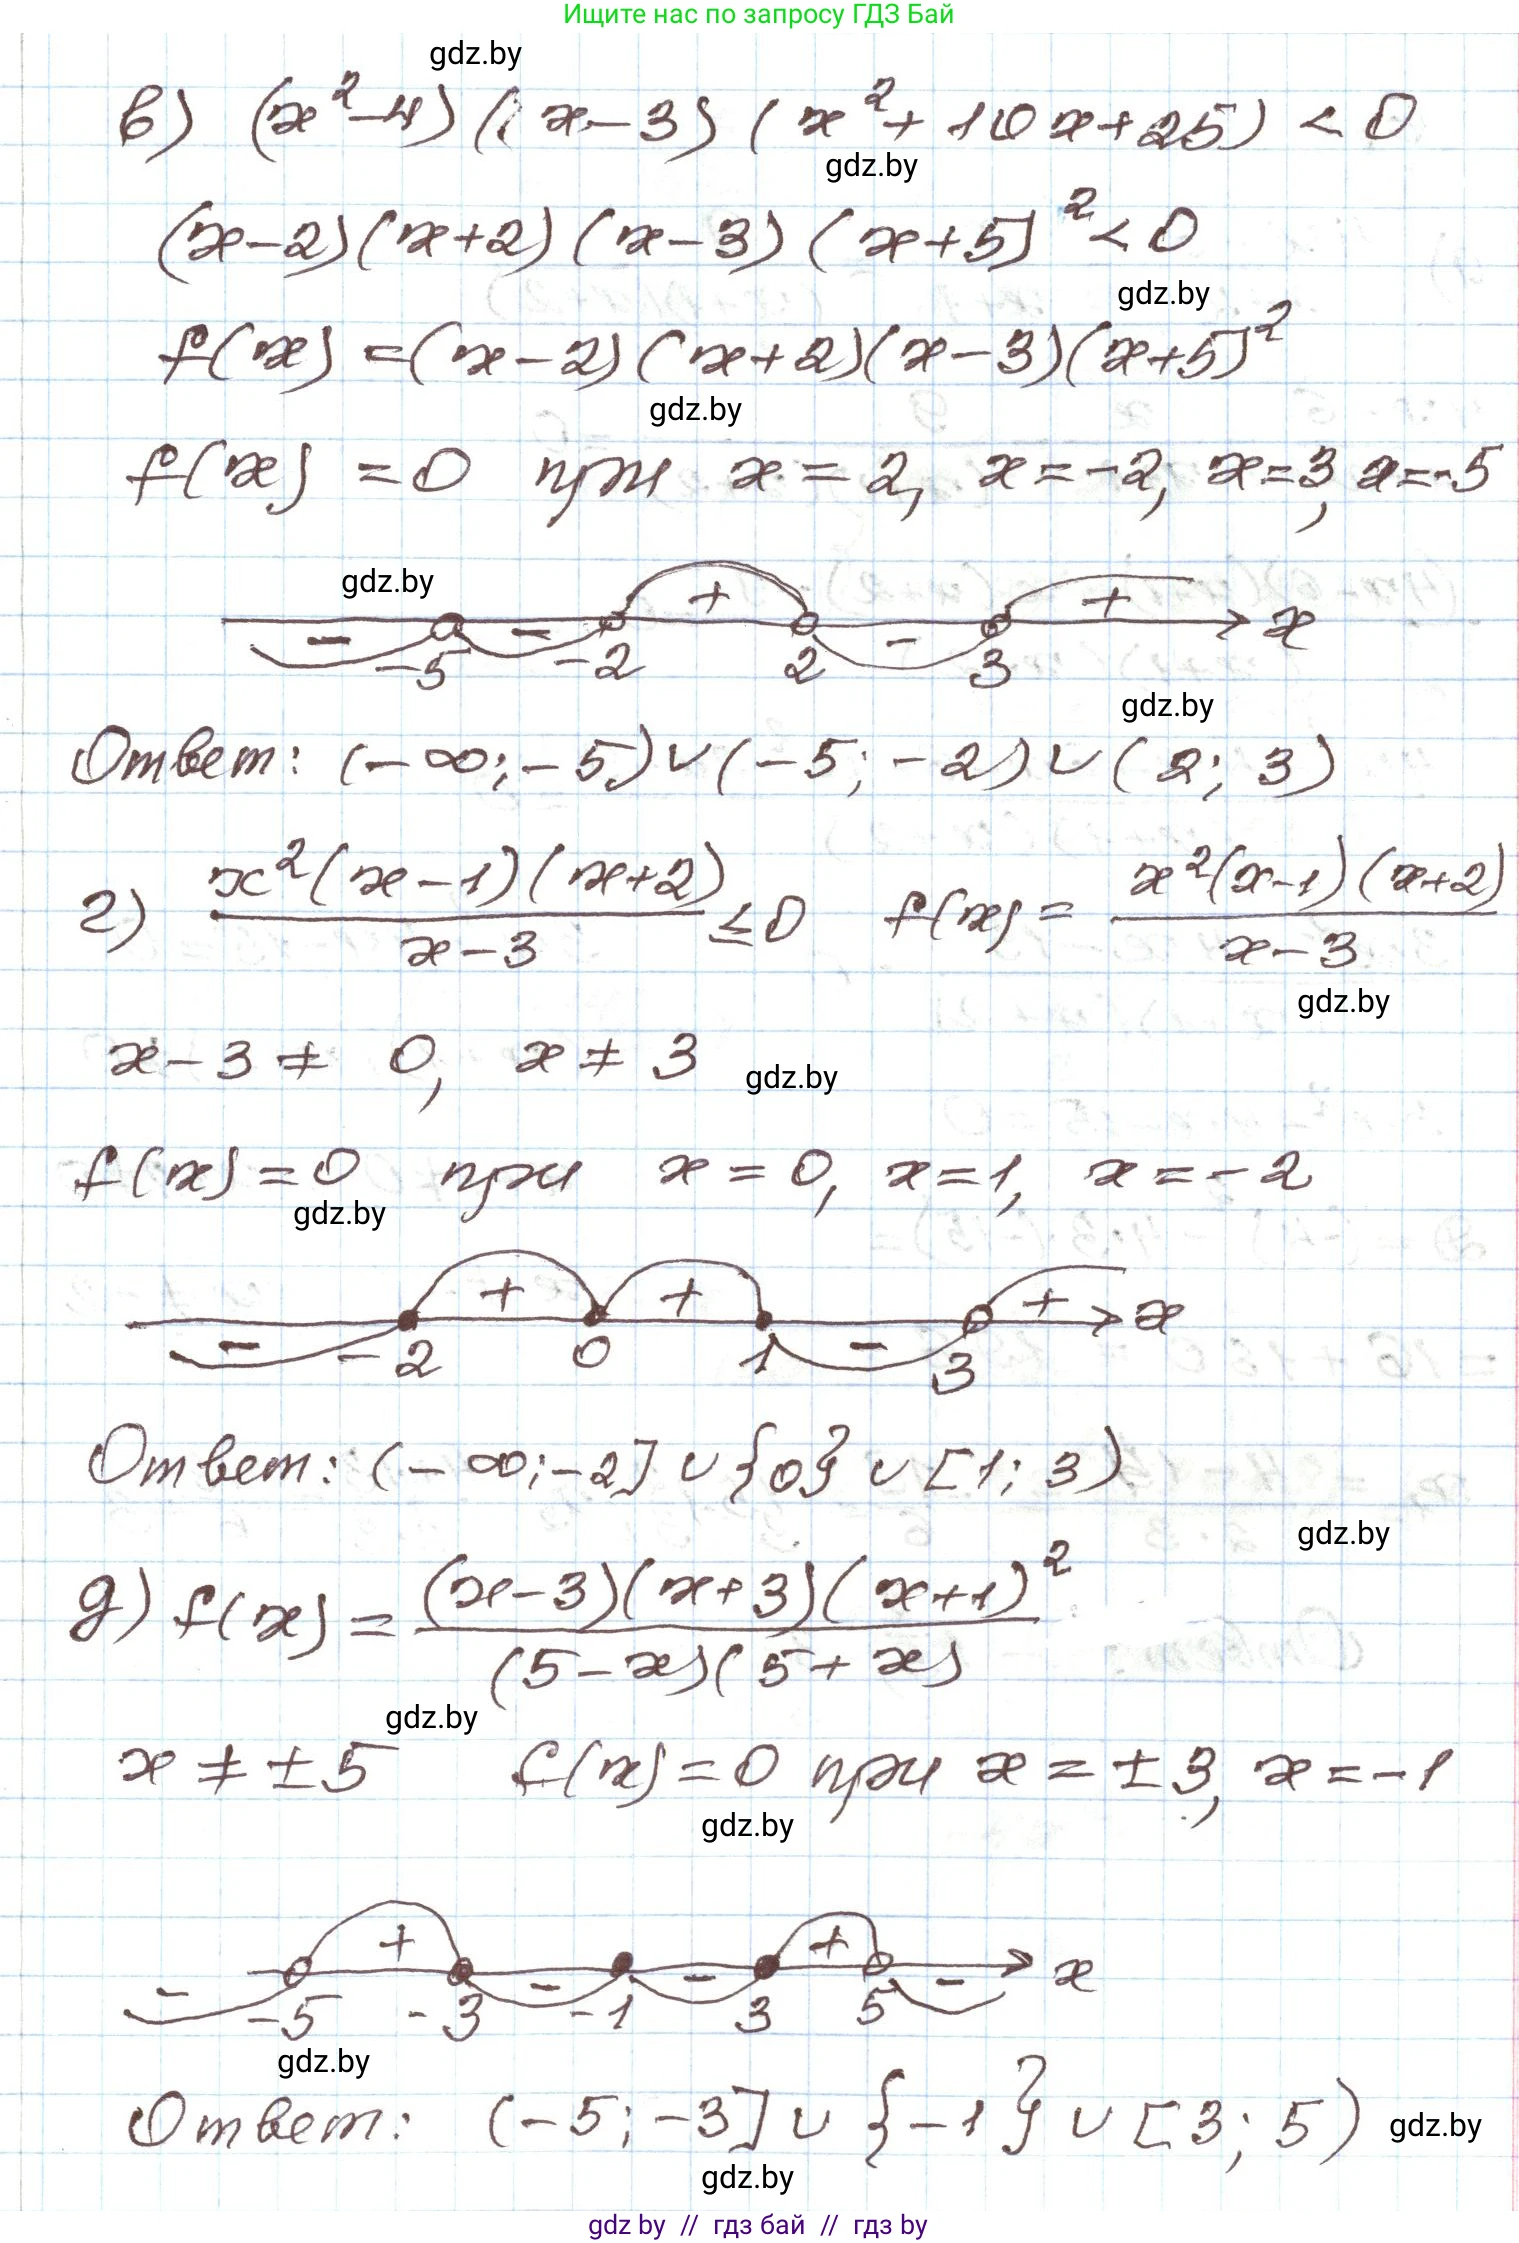 Ищите нас по запросу ГДЗ Бай
gdz.by
в) (x²-4)(x-3)(x²+10x+25)<0
gdz.by
(x-2)(x+2)(x-3)(x+5)²<0
gdz.by
f(x)=(x-2)(x+2)(x-3)(x+5)²
gdz.by
f(x)=0 при x=2, x=-2, x=3, x=-5
gdz.by
- - + - + x
-5 -2 2 3
gdz.by
Ответ: (-∞;-5)∪(-5;-2)∪(2;3)
г) x²(x-1)(x+2)/x-3 ≤0 f(x)= x²(x-1)(x+2)/x-3
gdz.by
x-3≠0, x≠3
gdz.by
f(x)=0 при x=0, x=1, x=-2
gdz.by
- + + - + x
-2 0 1 3
Ответ: (-∞;-2]∪{0}∪[1;3)
gdz.by
д) f(x)= (x-3)(x+3)(x+1)²/(5-x)(5+x)
gdz.by
x≠±5 f(x)=0 при x=±3, x=-1
gdz.by
- + - - + - x
-5 -3 -1 3 5
gdz.by
Ответ: (-5;-3]∪{-1}∪[3;5)
gdz.by
gdz.by
gdz by // гдз бай // гдз by